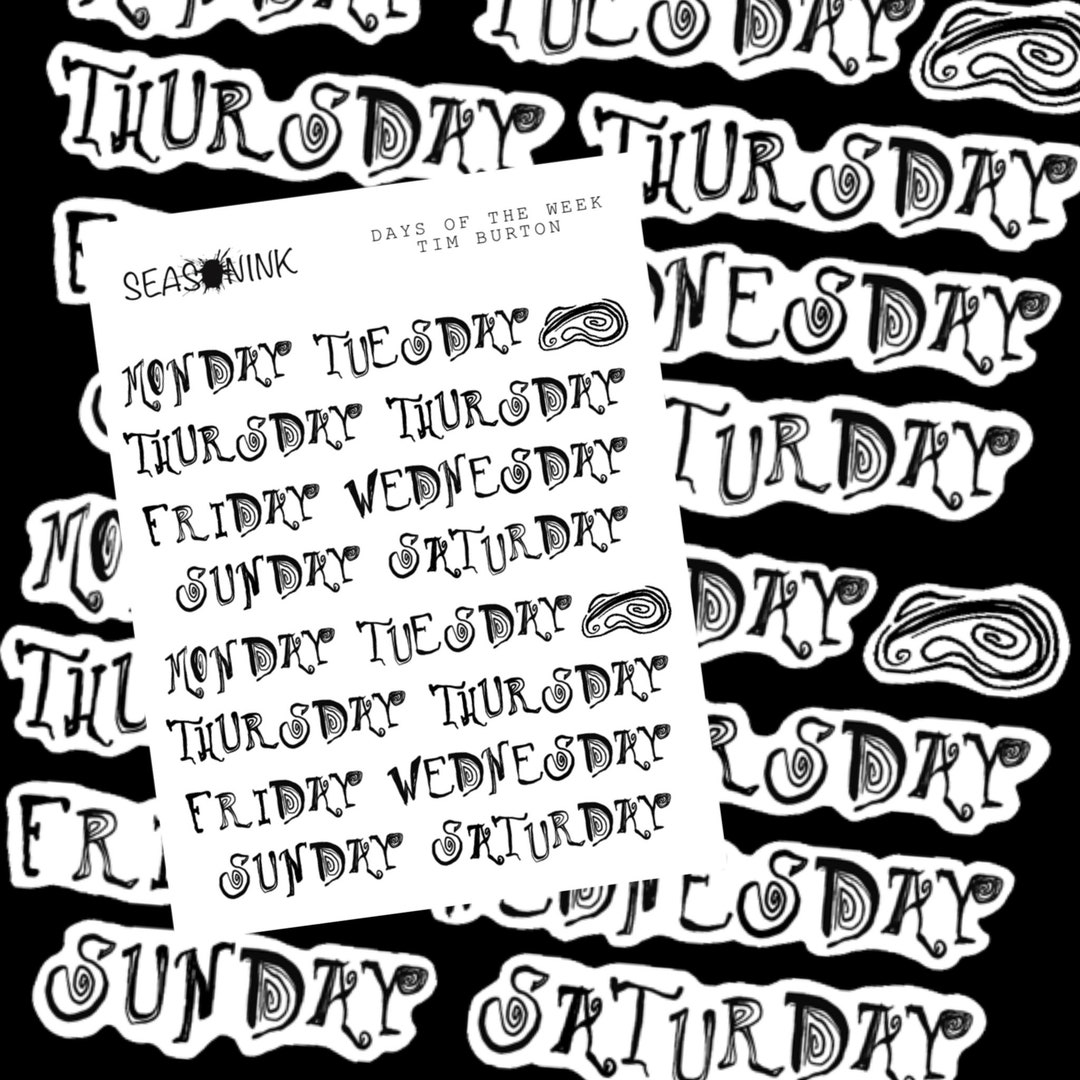 NDAY TUESDAY
THURSDAY THURSDAY
F DNESDAY
TURDAY
MO DAY
THU RSDAY
FRI WEDNESDAY
SUNDAY SATURDAY
SEASONINK
DAYS OF THE WEEK
TIM BURTON
MONDAY TUESDAY
THURSDAY THURSDAY
FRIDAY WEDNESDAY
SUNDAY SATURDAY
MONDAY TUESDAY
THURSDAY THURSDAY
FRIDAY WEDNESDAY
SUNDAY SATURDAY